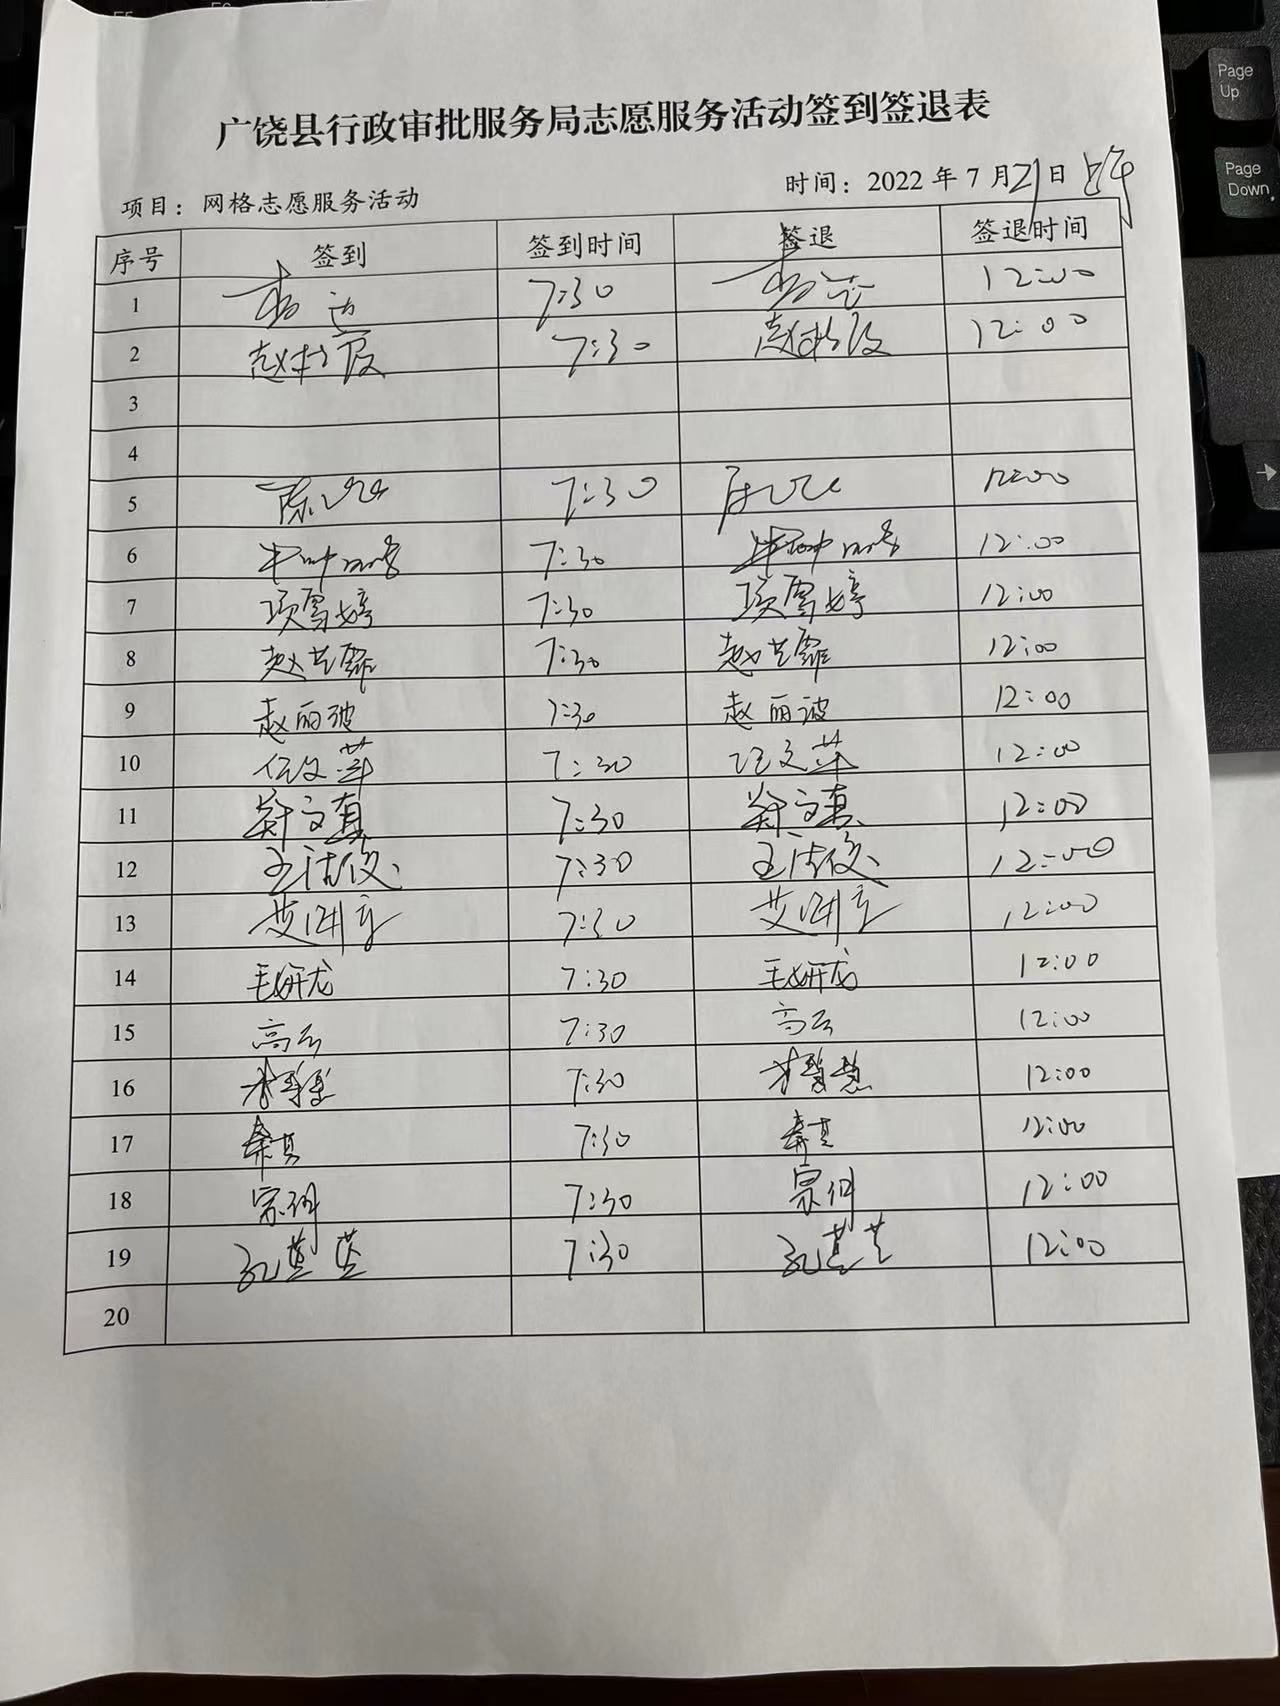 广饶县行政审批服务局志愿服务活动签到签退表
项目：网格志愿服务活动 时间：2022 年 7 月 21 日 上午
序号 签到 签到时间 签退 签退时间
1 7:30 12:00
2 赵 7:30 赵 12:00
3
4
5 7:30 12:00
6 7:30 12:00
7 项雪婷 7:30 项雪婷 12:00
8 赵芸霏 7:30 赵芸霏 12:00
9 赵丽波 7:30 赵丽波 12:00
10 任文萍 7:30 任文萍 12:00
11 郑文真 7:30 郑文真 12:00
12 王洁俊 7:30 王洁俊 12:00
13 艾 7:30 艾 12:00
14 毛妍龙 7:30 毛妍龙 12:00
15 高云 7:30 高云 12:00
16 7:30 12:00
17 7:30 12:00
18 7:30 12:00
19 7:30 12:00
20
Page Up
Page Down